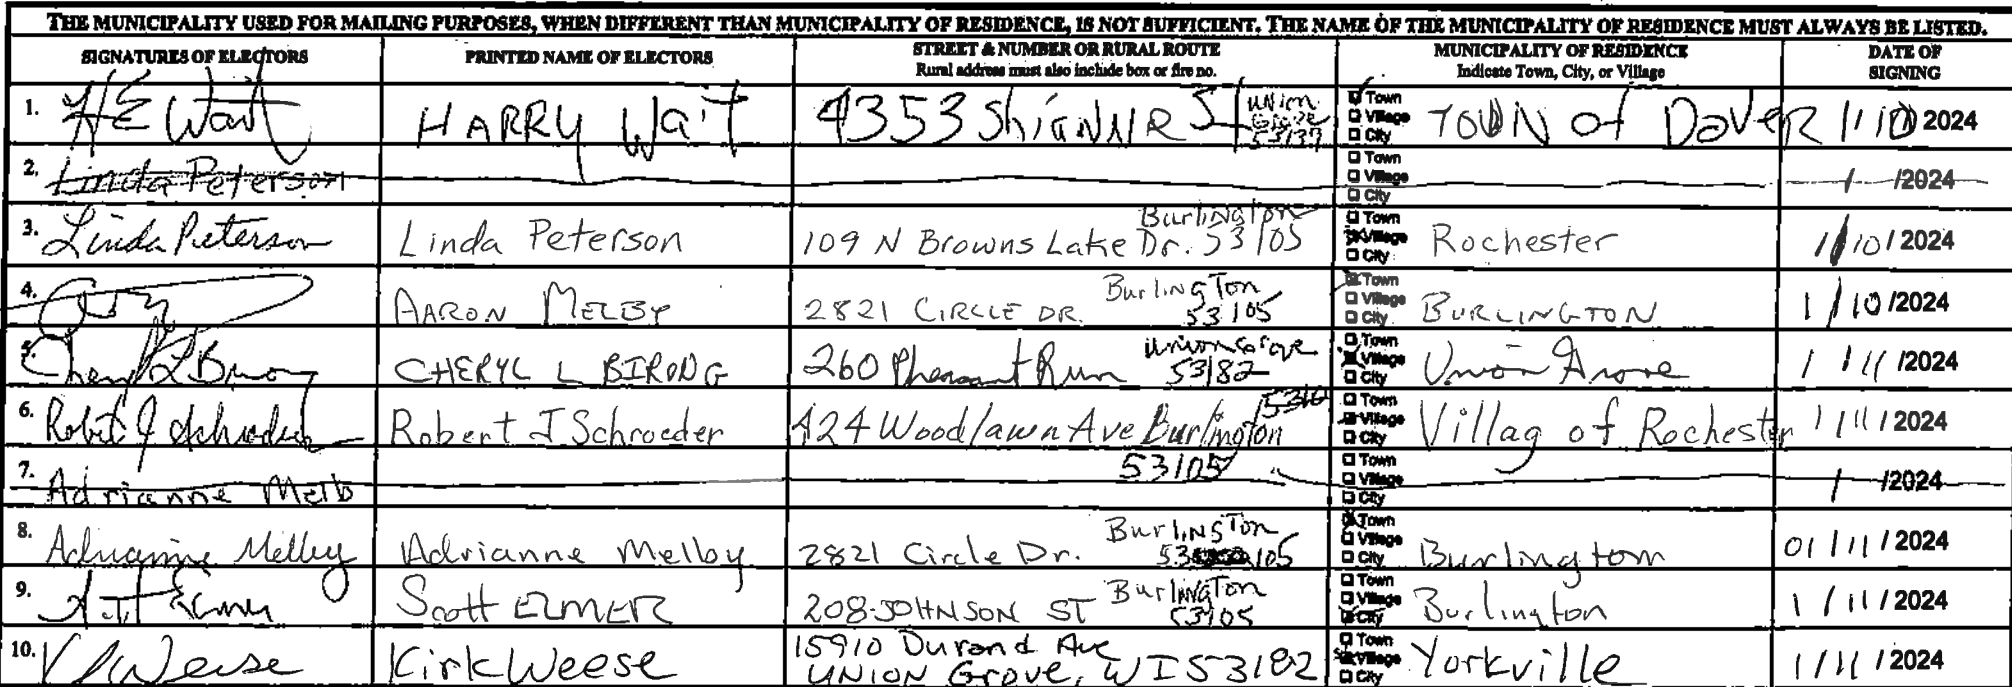 THE MUNICIPALITY USED FOR MAILING PURPOSES, WHEN DIFFERENT THAN MUNICIPALITY OF RESIDENCE, IS NOT SUFFICIENT. THE NAME OF THE MUNICIPALITY OF RESIDENCE MUST ALWAYS BE LISTED.
SIGNATURES OF ELECTORS
PRINTED NAME OF ELECTORS
STREET & NUMBER OR RURAL ROUTE
Rural address must also include box or fire no.
MUNICIPALITY OF RESIDENCE
Indicate Town, City, or Village
DATE OF
SIGNING
1. HE Wait HARRY Wait 4353 Union
Grove
Town
Village
City
TOWN of DOVER 1/10/2024
2. Linda Peterson
Town
Village
City
/ /2024
3. Linda Peterson Linda Peterson 109 N Browns Lake Dr. Burlington
53105
Town
Village
City
Rochester 1/10/2024
4. AARON MELBY 2821 CIRCLE DR. Burlington
53105
Town
Village
City
BURLINGTON 1/10/2024
5. CHERYL L BIRONG 260 Pheasant Run Union Grove
53182
Town
Village
City
Union Grove 1/11/2024
6. Robert J Schroeder Robert J Schroeder 424 Woodlawn Ave Burlington
53105
Town
Village
City
Villag of Rochester 1/11/2024
7. Adrianne Melb
Town
Village
City
/ /2024
8. Adrianne Melby Adrianne Melby 2821 Circle Dr. Burlington
53105
Town
Village
City
Burlington 01/11/2024
9. Scott ELMER 208 JOHNSON ST Burlington
53105
Town
Village
City
Burlington 1/11/2024
10. Kirk Weese 15910 Durand Ave
UNION Grove, WI 53182
Town
Village
City
Yorkville 1/11/2024